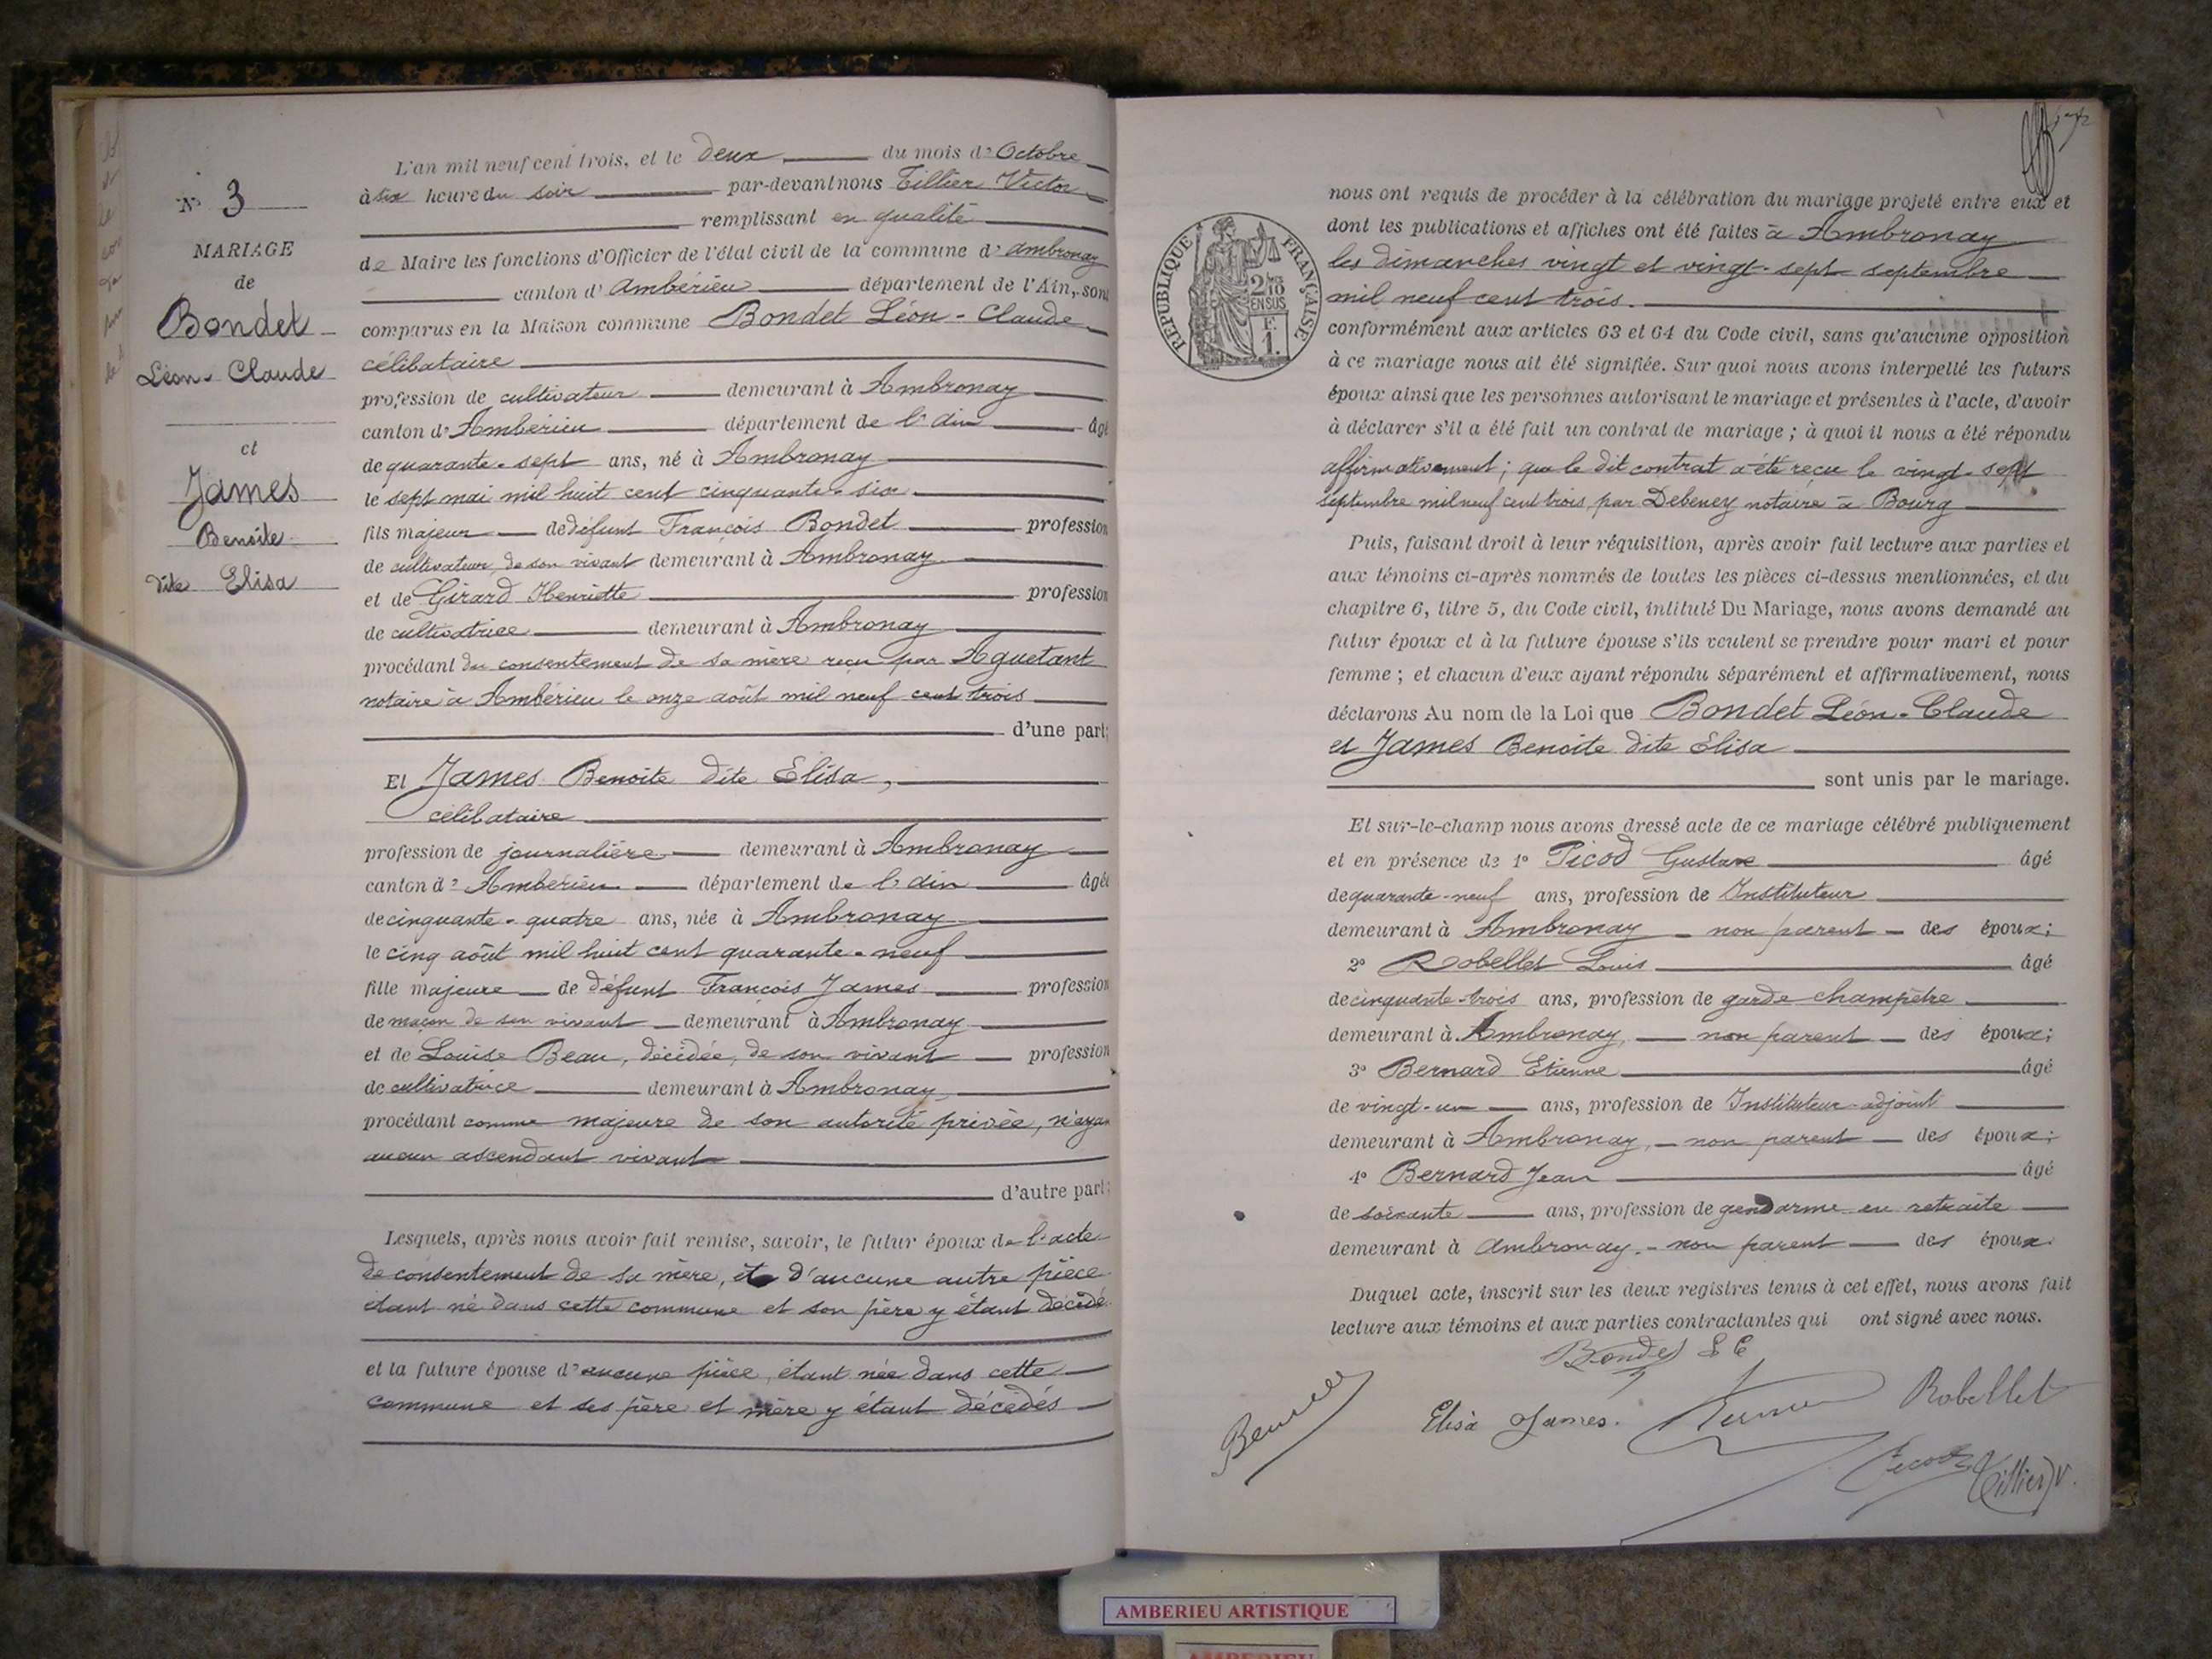 N° 3
MARIAGE
de
Bondet
Léon-Claude
et
James
Benoîte
dite Elisa
L'an mil neuf cent trois, et le deux du mois d'Octobre
à six heure du soir par-devant nous Tillier Victor
remplissant en qualité
de Maire les fonctions d'Officier de l'état civil de la commune d'Ambronay
canton d'Ambérieu département de l'Ain, sont
comparus en la Maison commune Bondet Léon-Claude
célibataire
profession de cultivateur demeurant à Ambronay
canton d'Ambérieu département de l'ain âgé
de quarante-sept ans, né à Ambronay
le sept mai mil huit cent cinquante-six
fils majeur de défunt François Bondet profession
de cultivateur de son vivant demeurant à Ambronay
et de Girard Henriette profession
de cultivatrice demeurant à Ambronay
procédant du consentement de sa mère reçu par Aguetant
notaire à Ambérieu le onze août mil neuf cent trois
d'une part;
Et James Benoite dite Elisa,
célibataire
profession de journalière demeurant à Ambronay
canton d'Ambérieu département de l'ain âgée
de cinquante-quatre ans, née à Ambronay
le cinq août mil huit cent quarante-neuf
fille majeure de défunt François James profession
de maçon de son vivant demeurant à Ambronay
et de Louise Beau, décédée, de son vivant profession
de cultivatrice demeurant à Ambronay
procédant comme majeure de son autorité privée, n'ayan
aucun ascendant vivant
d'autre part;
Lesquels, après nous avoir fait remise, savoir, le futur époux de l'acte
de consentement de sa mère, et d'aucune autre pièce
étant né dans cette commune et son père y étant décédé
et la future épouse d'aucune pièce, étant née dans cette
commune et ses père et mère y étant décédés
nous ont requis de procéder à la célébration du mariage projeté entre eux et
dont les publications et affiches ont été faites à Ambronay
les dimanches vingt et vingt-sept septembre
mil neuf cent trois.
RÉPUBLIQUE FRANÇAISE
2/10 EN SUS
F. 1.
conformément aux articles 63 et 64 du Code civil, sans qu'aucune opposition
à ce mariage nous ait été signifiée. Sur quoi nous avons interpellé les futurs
époux ainsi que les personnes autorisant le mariage et présentes à l'acte, d'avoir
à déclarer s'il a été fait un contrat de mariage; à quoi il nous a été répondu
affirmativement; que le dit contrat a été reçu le vingt-sept
septembre mil neuf cent trois, par Debeney notaire à Bourg
Puis, faisant droit à leur réquisition, après avoir fait lecture aux parties et
aux témoins ci-après nommés de toutes les pièces ci-dessus mentionnées, et du
chapitre 6, titre 5, du Code civil, intitulé Du Mariage, nous avons demandé au
futur époux et à la future épouse s'ils veulent se prendre pour mari et pour
femme; et chacun d'eux ayant répondu séparément et affirmativement, nous
déclarons Au nom de la Loi que Bondet Léon-Claude
et James Benoite dite Elisa
sont unis par le mariage.
Et sur-le-champ nous avons dressé acte de ce mariage célébré publiquement
et en présence de 1° Picod Gustave âgé
de quarante-neuf ans, profession de Instituteur
demeurant à Ambronay - non parent - des époux;
2° Robellet Louis âgé
de cinquante-trois ans, profession de garde champêtre
demeurant à Ambronay, - non parent - des époux;
3° Bernard Etienne âgé
de vingt-un ans, profession de Instituteur-adjoint
demeurant à Ambronay, - non parent - des époux;
4° Bernard Jean âgé
de soixante ans, profession de gendarme en retraite
demeurant à Ambronay, - non parent - des époux.
Duquel acte, inscrit sur les deux registres tenus à cet effet, nous avons fait
lecture aux témoins et aux parties contractantes qui ont signé avec nous.
Bondet L C
Elisa James.
Robellet
Picod
Tillier V.
AMBERIEU ARTISTIQUE
AMBERIEU